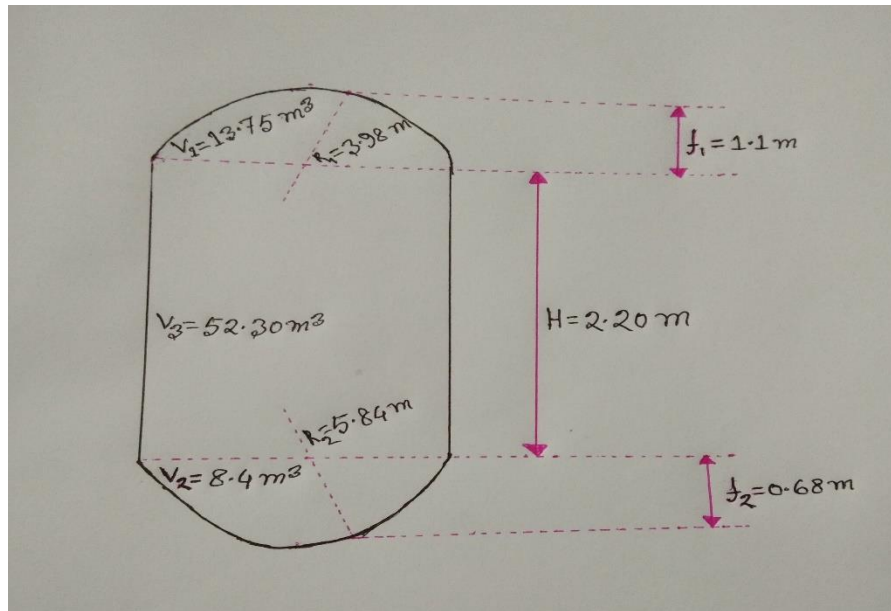 V₁=13.75 m³
R₁=3.98 m
f₁=1.1m
V₃=52.30m³
H=2.20 m
R₂=5.84m
V₂=8.4m³
f₂=0.68m